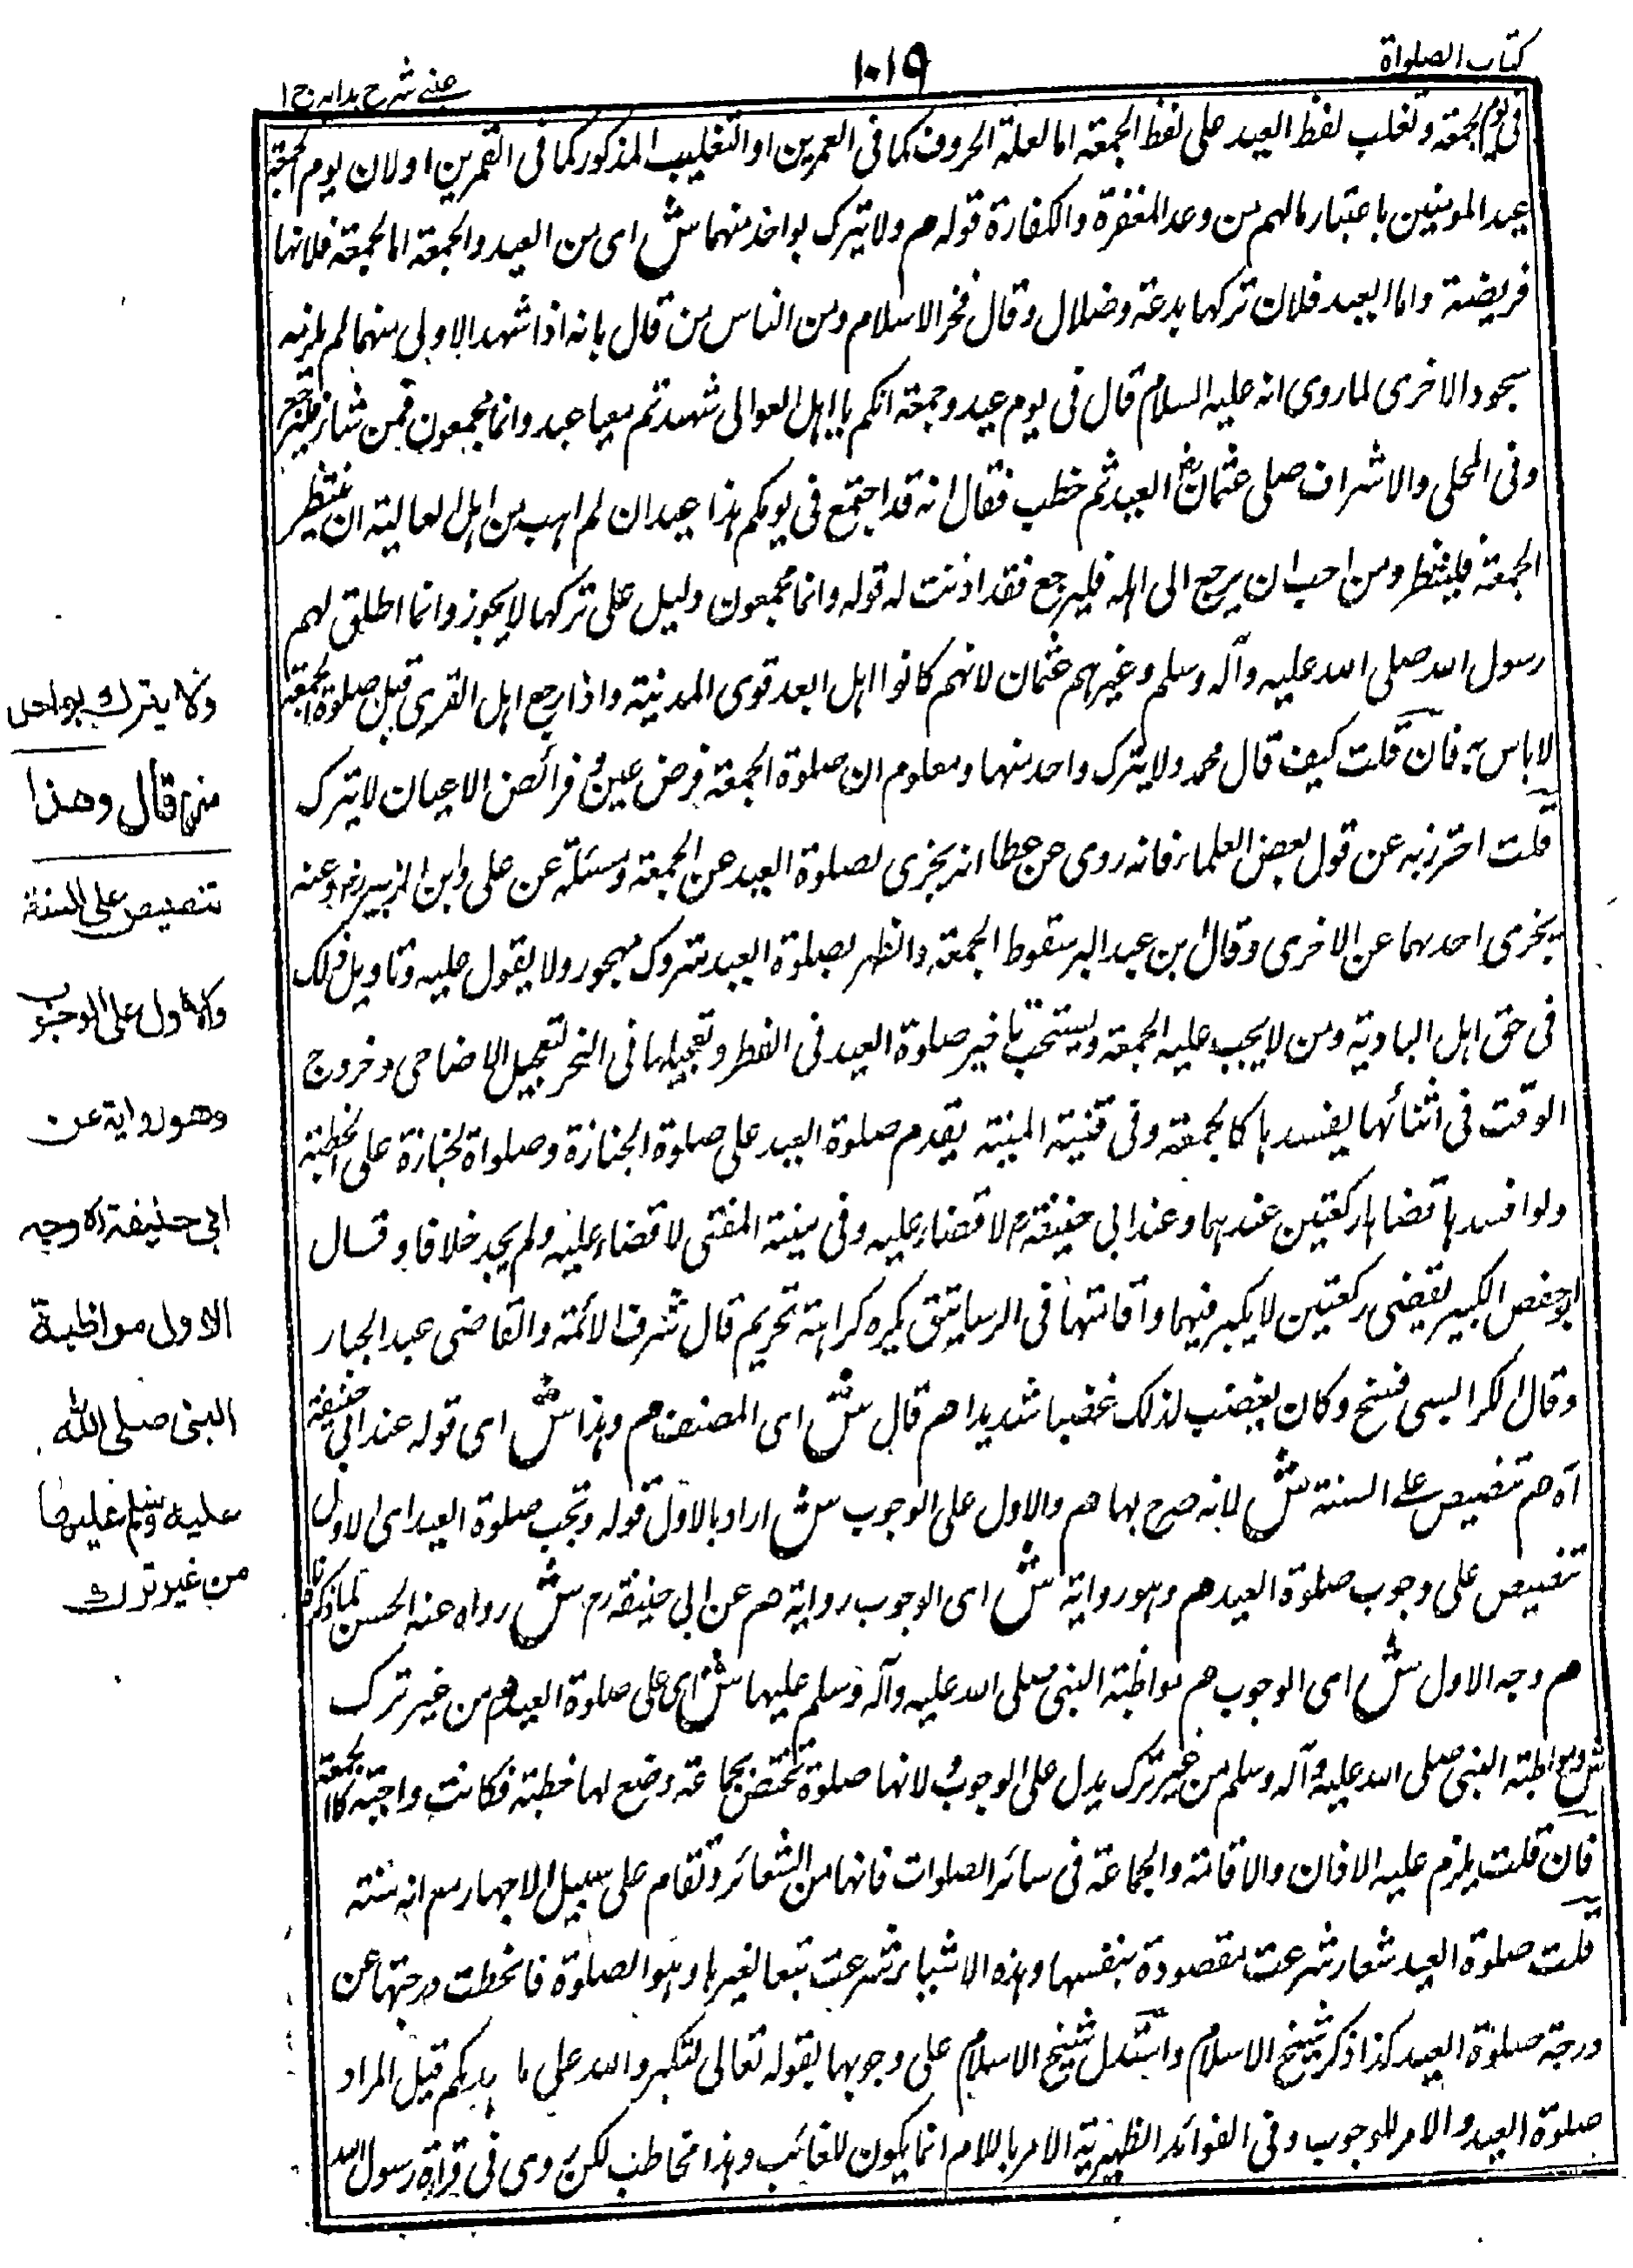 كتاب الصلواة
١٠١٩
عينى شرح هدايه ج ١
فى يوم الجمعة وتغلب لفظ العيد على لفظ الجمعة اما لعلة الحروف كما فى العمرين او التغليب المذكور كما فى القمرين اولان يوم الجمعة
عيد المومنين باعتبار مالهم من وعد المغفرة والكفارة قوله م ولا يترك بواحد منهما ش اى من العيد والجمعة اما الجمعة فلانها
فريضة واما العيد فلان تركها بدعة وضلال وقال فخر الاسلام ومن الناس من قال بانه اذا شهد الاولى منهما لم يلزمه
سجود الاخرى لما روى انه عليه السلام قال فى يوم عيد وجمعة انكم يا اهل العوالى شهدتم معنا عيد وانا مجمعون فمن شاء فليرجع
وفى المحلى والاشراف صلى عثمان رض العيد ثم خطب فقال انه قد اجتمع فى يومكم هذا عيدان لم اهب من اهل العالية ان ينتظر
الجمعة فلينتظر ومن احب ان يرجع الى اهله فليرجع فقد اذنت له قوله وانا مجمعون دليل على تركها لا يجوز وانما اطلق لهم
رسول الله صلى الله عليه وآله وسلم وغيرهم عثمان لانهم كانوا اهل ابعد قوى المدينة واذا رجع اهل القرى قبل صلوة الجمعة
لا باس به فان قلت كيف قال محمد ولا يترك واحد منهما ومعلوم ان صلوة الجمعة فرض عين وفرائض الاعيان لا تترك
قلت احترز به عن قول بعض العلماء فانه روى عن عطا انه يجزى لصلوة العيد عن الجمعة ومسئلة عن على وابن الزبير رض وعنه
يجزى احدهما عن الاخرى وقال ابن عبد البر سقوط الجمعة والظهر بصلوة العيد متروك مهجور ولا يقول عليه وتاويل ذلك
فى حق اهل البادية ومن لا يجب عليه الجمعة ويستحب تاخير صلوة العيد فى الفطر وتعجيلها فى النحر لتعجيل الاضاحى وخروج
الوقت فى اثنائها يفسدها كالجمعة وفى قنية المنية يقدم صلوة العيد على صلوة الجنازة وصلواة الجنازة على الخطبة
ولو افسدها قضاها ركعتين عندهما وعند ابى حنيفة رح لا قضاء عليه وفى منية المفتى لا قضاء عليه ولم يجد خلافا وقال
ابو حفص الكبير يقضى ركعتين لا يكبر فيهما واقامتها فى الرساتيق يكره كراهة تحريم قال شرف الائمة والقاضى عبد الجبار
وقال الكرابيسى فسخ وكان يغضب لذلك غضبا شديدا هم قال ش اى المصنف هم وهذا ش اى قوله عند ابى حنيفة
اه هم تنصيص على السنة ش لانه صرح بها هم والاول على الوجوب ش اراد بالاول قوله وتجب صلوة العيد اى الاول
تنصيص على وجوب صلوة العيد هم وهو رواية ش اى الوجوب رواية هم عن ابى حنيفة رح ش رواه عنه الحسن كما ذكرنا
هم وجه الاول ش اى الوجوب هم مواظبة النبى صلى الله عليه وآله وسلم عليها ش اى على صلوة العيد م من غير ترك
ش ومواظبة النبى صلى الله عليه وآله وسلم من غير ترك يدل على الوجوب لانها صلوة تختص بجماعة وضع لها خطبة فكانت واجبة كالجمعة
فان قلت يلزم عليه الاذان والاقامة والجماعة فى سائر الصلوات فانها من الشعائر وتقام على سبيل الاجهار مع انه سنة
قلت صلوة العيد شعار شرعت مقصودة بنفسها وهذه الاشياء شرعت تبعا لغيرها وهو الصلوة فانحطت درجتها عن
درجة صلوة العيد كذا ذكر شيخ الاسلام واستدل شيخ الاسلام على وجوبها بقوله تعالى لتكبروا الله على ما هديكم قيل المراد
صلوة العيد والامر للوجوب وفى الفوائد الظهيرية الامر باللام انما يكون للغائب وهذا مخاطب لكن روى فى قراءة رسول الله
ولا يترك بواحد
منهما قال وهذا
تنصيص على السنة
والاول على الوجوب
وهو رواية عن
ابى حنيفة رح وجه
الاول مواظبة
النبى صلى الله
عليه وسلم عليها
من غير ترك